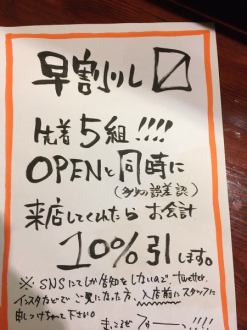 早割りし〼
先着5組!!!!
OPENと同時に
(多少の誤差認)
来店してくれたら お会計
10%引します。
※SNSにてしか告知をしないので、twitter、
インスタなどで ご覧になった方、入店前にスタッフに
申しつけちゃて下さい。